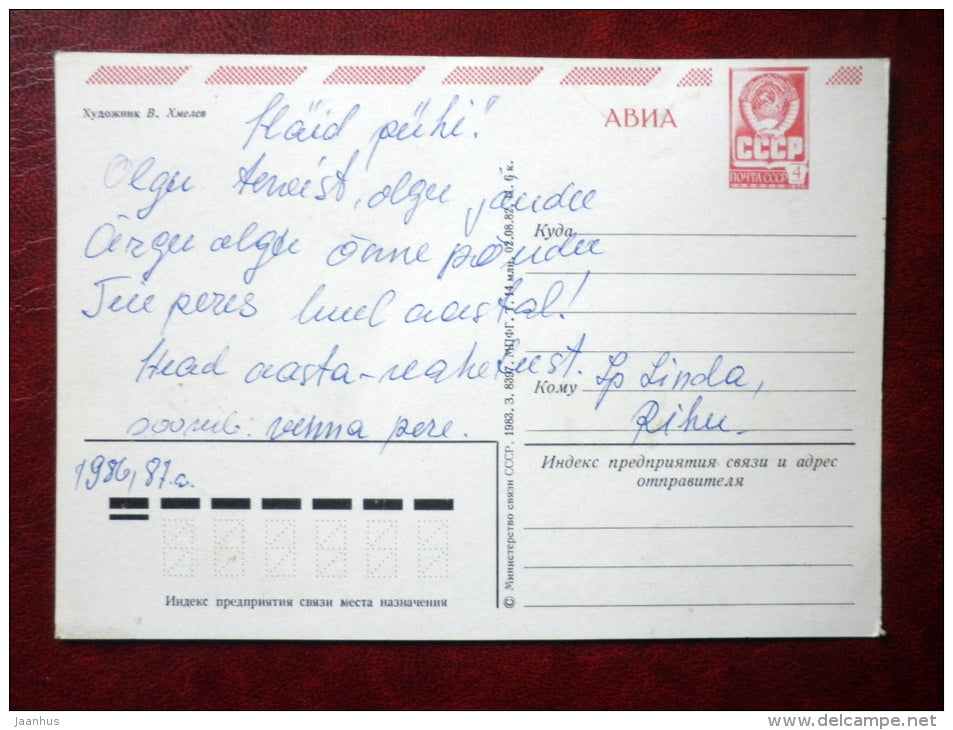 Художник В. Хмелев
АВИА
СССР
ПОЧТА СССР
4
Häid pühi!
Olgu tervist, olgu jõudu
Ärgu olgu õnne põudu
Teie peres uuel aastal!
Head aasta-vahetust.
soovib: venna pere.
1986/87.a.
Куда
Кому
Lp Linda,
Rihu
Индекс предприятия связи и адрес
отправителя
Индекс предприятия связи места назначения
© Министерство связи СССР. 1983. З. 8397. МПФГ. Т. 14 млн. 02.08.82. ц. 6 к.
Jaanhus
www.delcampe.net